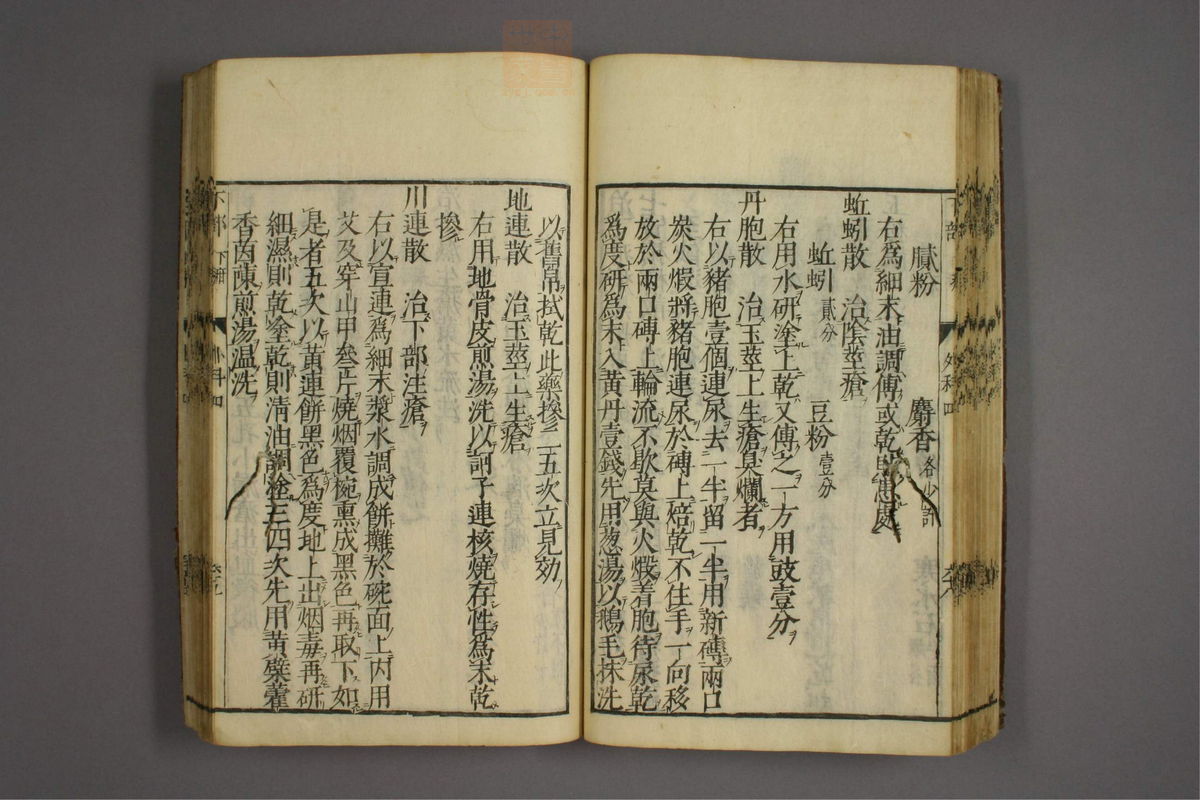 膩粉 麝香各少許
右爲細末油調傅或乾患處
蚯蚓散 治陰莖瘡
蚯蚓貳分 豆粉壹分
右用水研塗上乾又傅之一方用豉壹分
丹胞散 治玉莖上生瘡臭爛者
右以豬胞壹個連尿去一半留一半用新磚兩口
炭火煅將豬胞連尿於磚上焙乾不住手一向移
放於兩口磚上輪流不歇莫與火煅着胞待尿乾
爲度研爲末入黃丹壹錢先用葱湯以鵝毛抹洗
以舊帛拭乾此藥摻二五次立見効
地連散 治玉莖上生瘡
右用地骨皮煎湯洗以訶子連核燒存性爲末乾
摻
川連散 治下部疰瘡
右以宣連爲細末漿水調成餅攤於碗面上內用
艾及穿山甲叄片燒烟覆椀熏成黑色再取下如
是者五次以黃連餅黑色爲度地上出烟毒再研
細濕則乾塗乾則清油調塗三四次先用黃蘗藿
香茵蔯煎湯温洗
下部
外科四